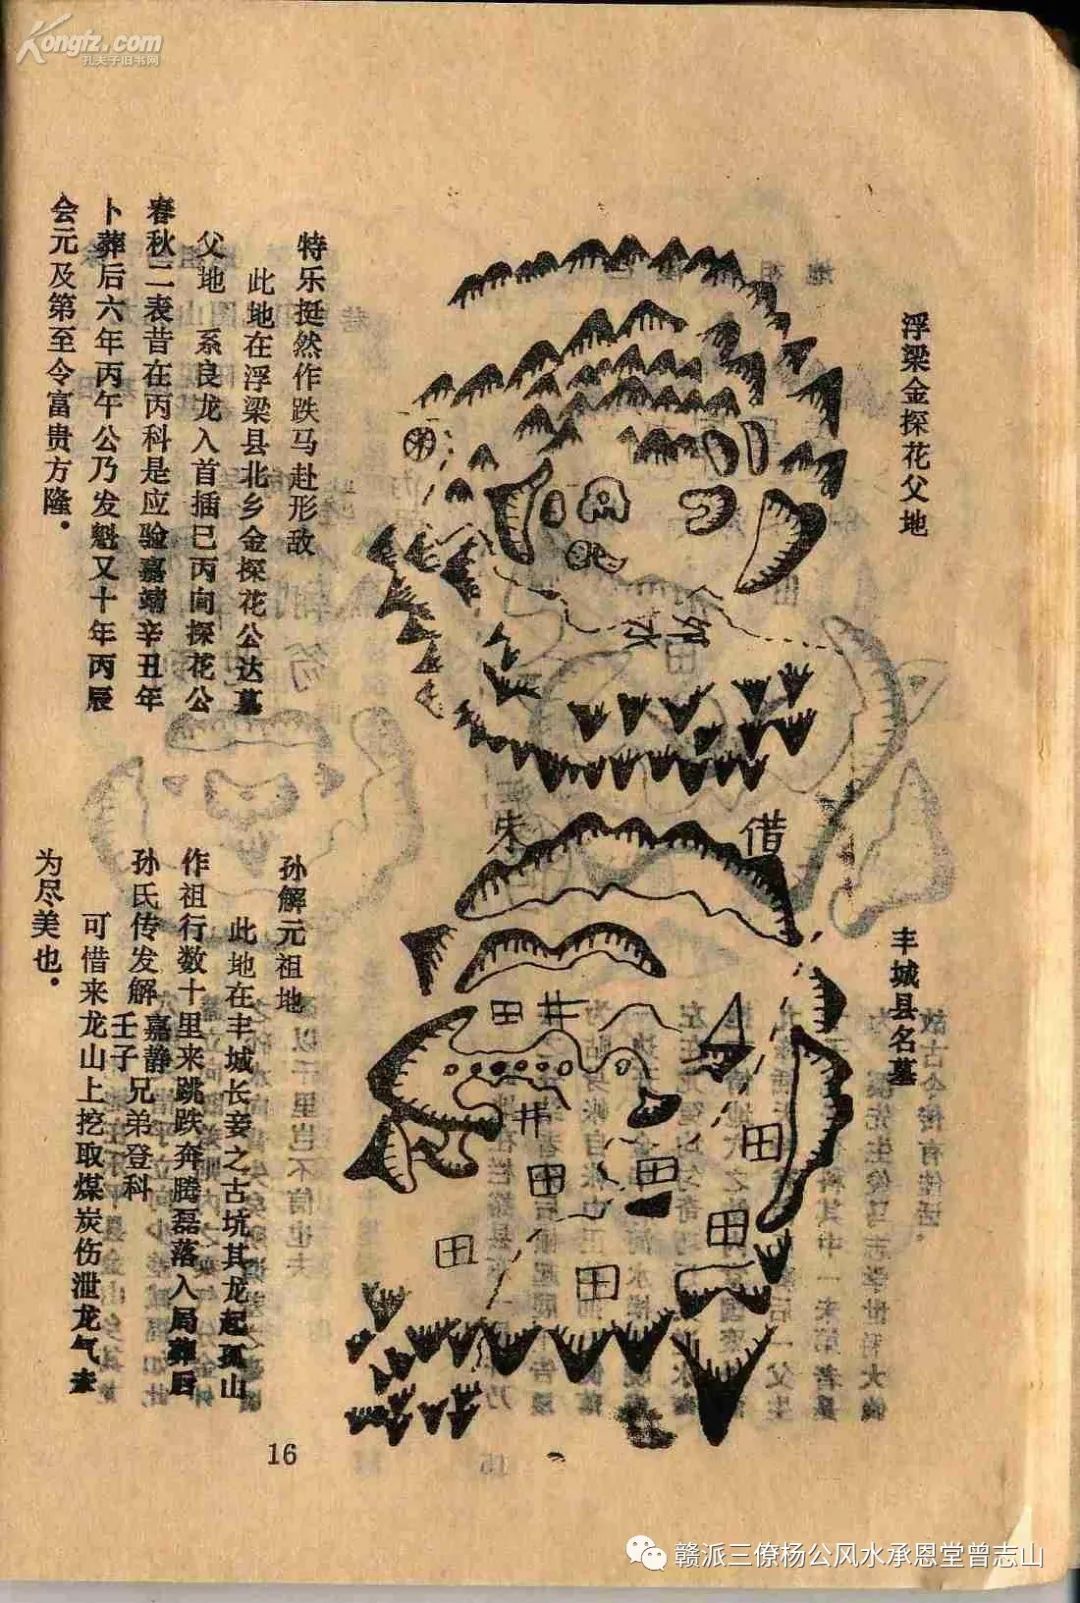 Kongfz.com
孔夫子旧书网
浮梁金探花父地
特乐挺然作跌马赴形敌
此地在浮梁县北乡金探花公达墓
父地 系良龙入首插巳丙向探花公
春秋二表昔在丙科是应验嘉靖辛丑年
卜葬后六年丙午公乃发魁又十年丙辰
会元及第至令富贵方隆.
朱
借
田
丰城县名墓
田
井
井
田
田
田
田
田
田
孙解元祖地
此地在丰城长妾之古坑其龙起孤山
作祖行数十里来跳跌奔腾磊落入局葬后
孙氏传发解嘉静壬子兄弟登科
可惜来龙山上挖取煤炭伤泄龙气未
为尽美也.
16
赣派三僚杨公风水承恩堂曾志山